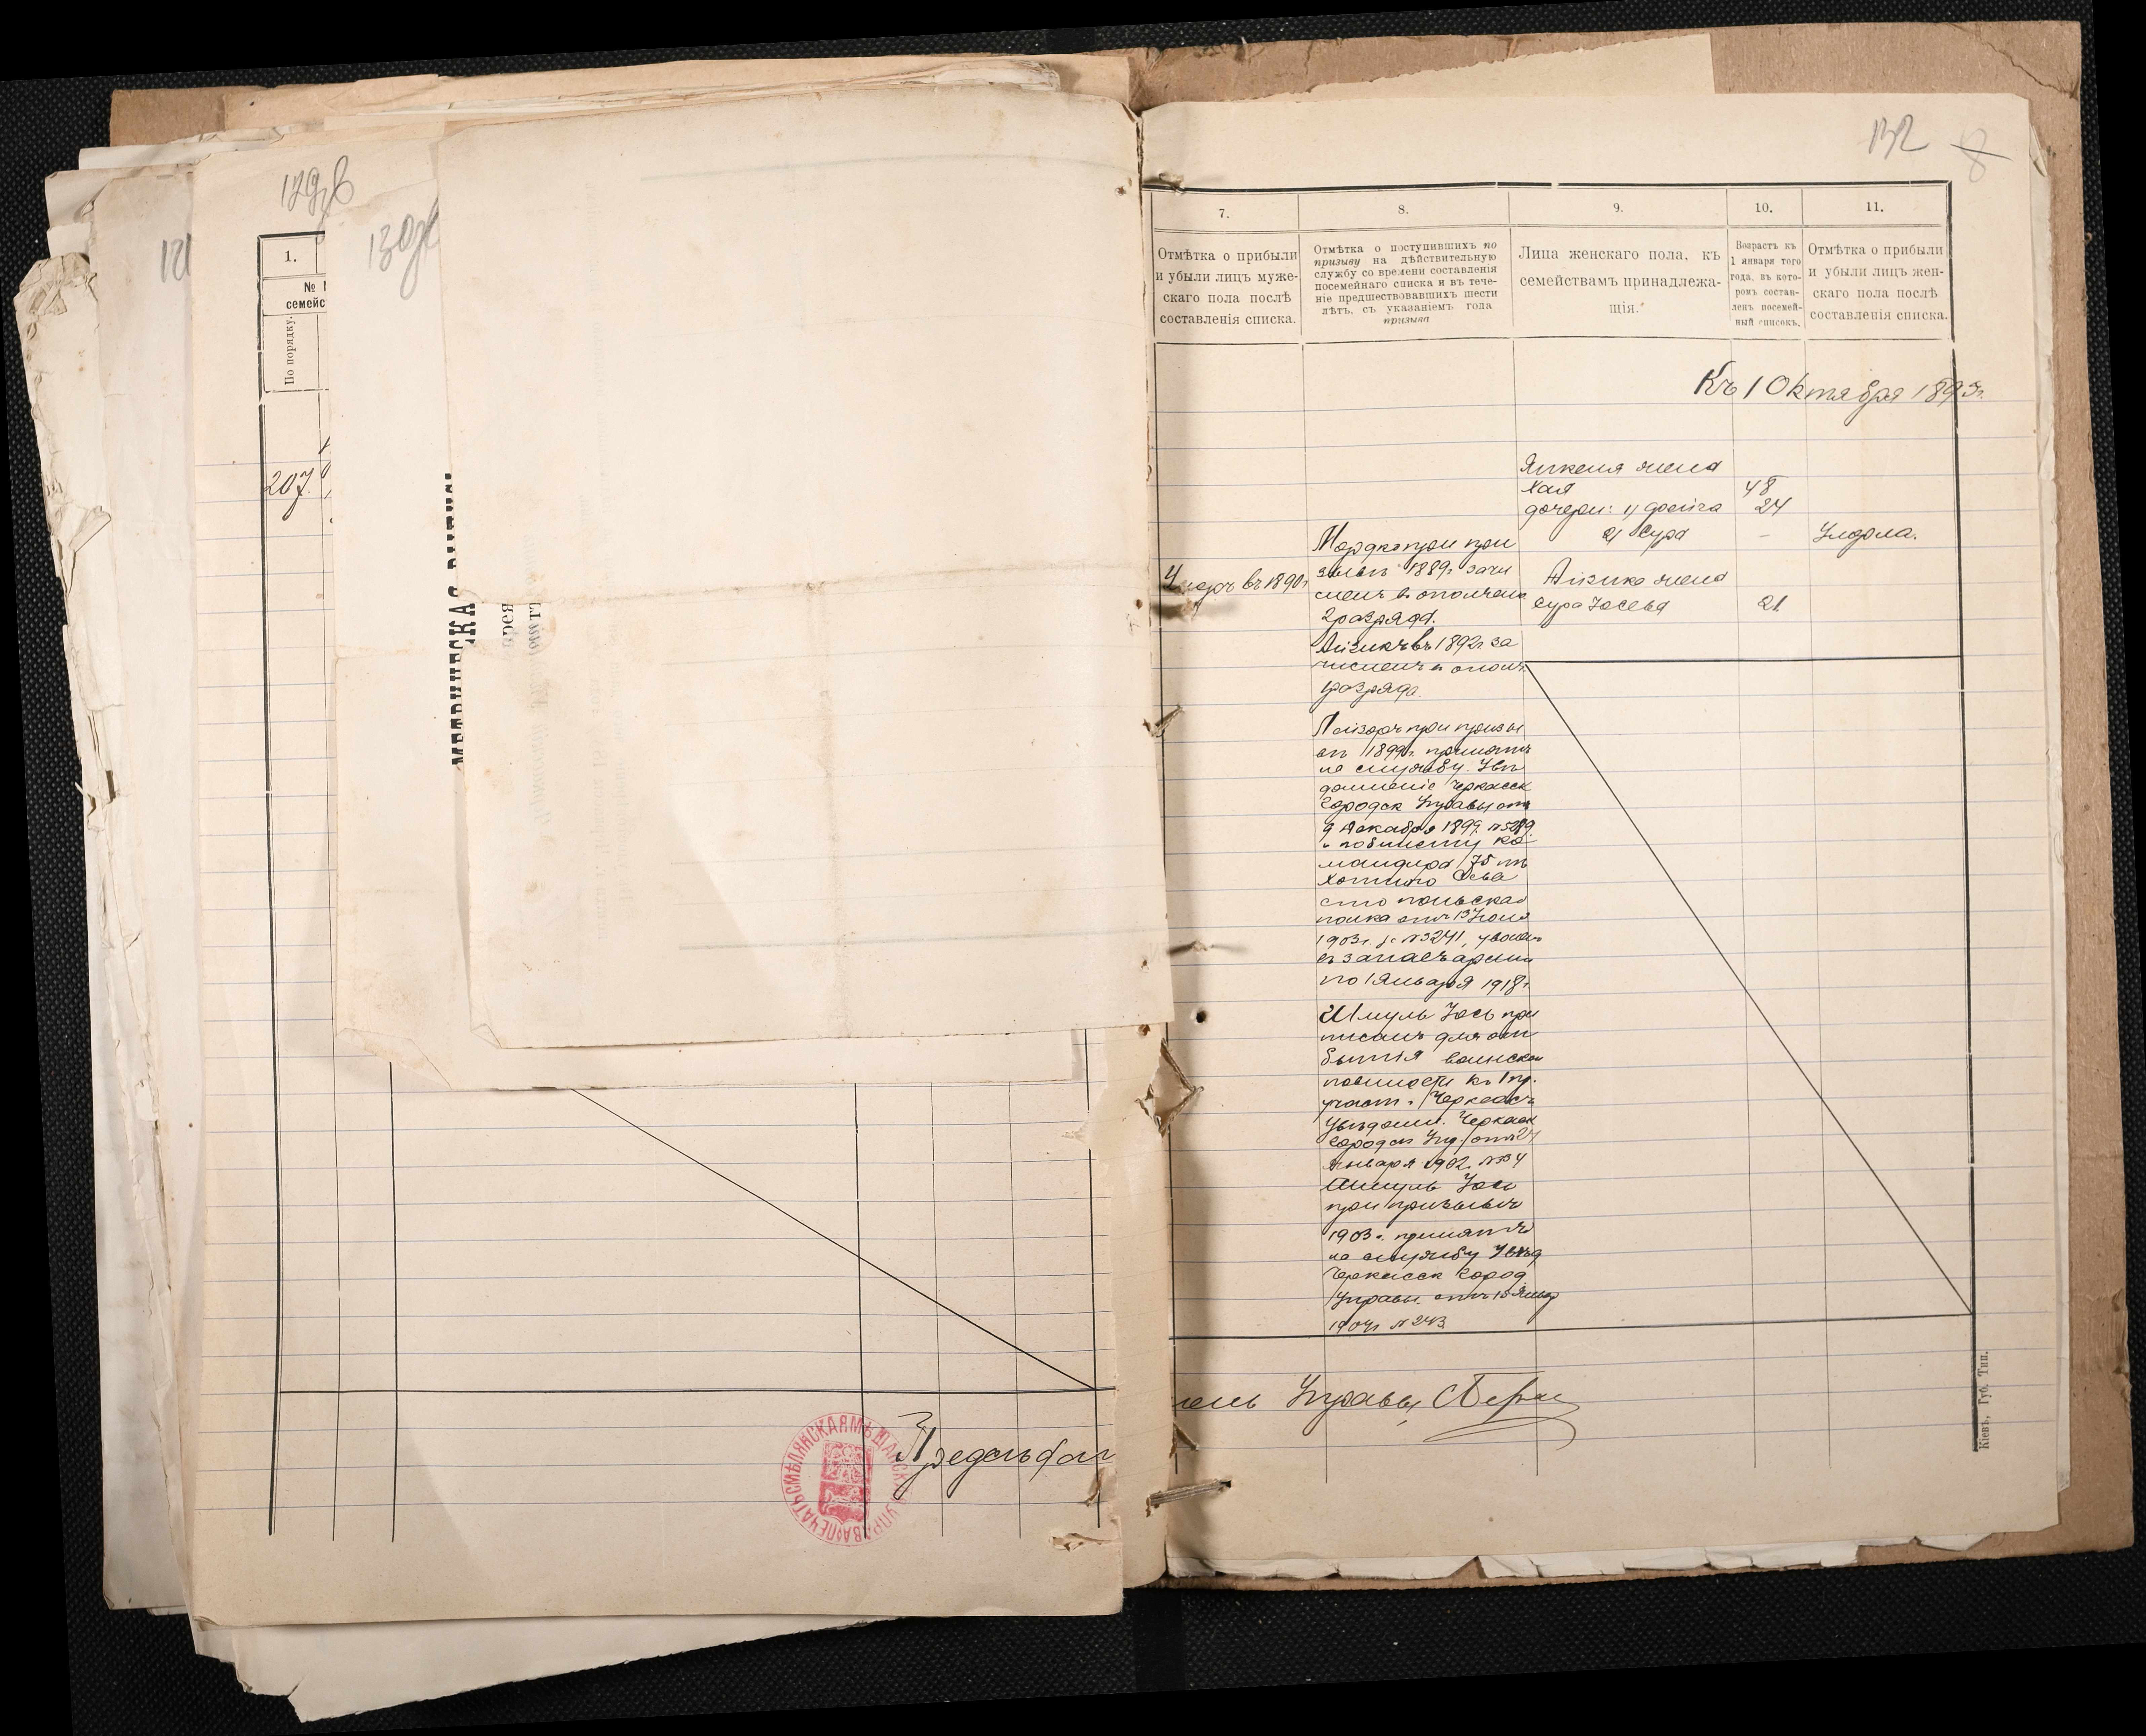 179 об
130 об
1.
№
семейс
По порядку.
207.
МЕТРИЧЕСКАЯ
ПЕЧАТЬ СМѢЛЯНСКАЯ МѢЩАНСК УПРАВА
132
8
7.
8.
9.
10.
11.
Отмѣтка о прибыли
и убыли лицъ муже-
скаго пола послѣ
составленія списка.
Отмѣтка о поступившихъ по
призыву на дѣйствительную
службу со времени составленія
посемейнаго списка и въ тече-
ніе предшествовавшихъ шести
лѣтъ, съ указаніемъ года
призыва
Лица женскаго пола, къ
семействамъ принадлежа-
щія.
Возрастъ къ
1 января того
года, въ кото-
ромъ состав-
ленъ посемей-
ный списокъ.
Отмѣтка о прибыли
и убыли лицъ жен-
скаго пола послѣ
составленія списка.
Къ 1 Октября 1893г.
Янкеля жена
Хая 48
дочери: 1) Фрейга 24
2) Сура – Умерла.
Айзика жена
Сура Юсева 21
Умеръ въ 1890г
Мордко при при
зывѣ 1889г зачи
сленъ въ ополчен
2 разряда.
Айзикъ въ 1892г за
численъ въ ополч
1 разряда.
Лейзоръ при призы
вѣ 1899г. принятъ
на службу. Увѣ
домленіе Черкасск
Городск Управы отъ
9 Декабря 1899. №5289.
и по билету ко
мандира 75 пѣ
хотнаго Сева
стопольскаго
полка отъ 13 Іюля
1903г. за №3241, уволен
въ запасъ арміи
по 1 Января 1918г
Шмуль Юсь при
писанъ для от
бытія воинской
повинности къ 1 пр.
участ. г. Черкассъ
Увѣдомл. Черкасск
Городск Упр. отъ 24
Января 1902. №34
Шмуль Юсь
при призывѣ
1903г. принятъ
на службу Увѣд
Черкасск Город
Управы. отъ 15 Январ
1904г №243.
Предсѣдатель Управы
Кіевъ, Губ. Тип.